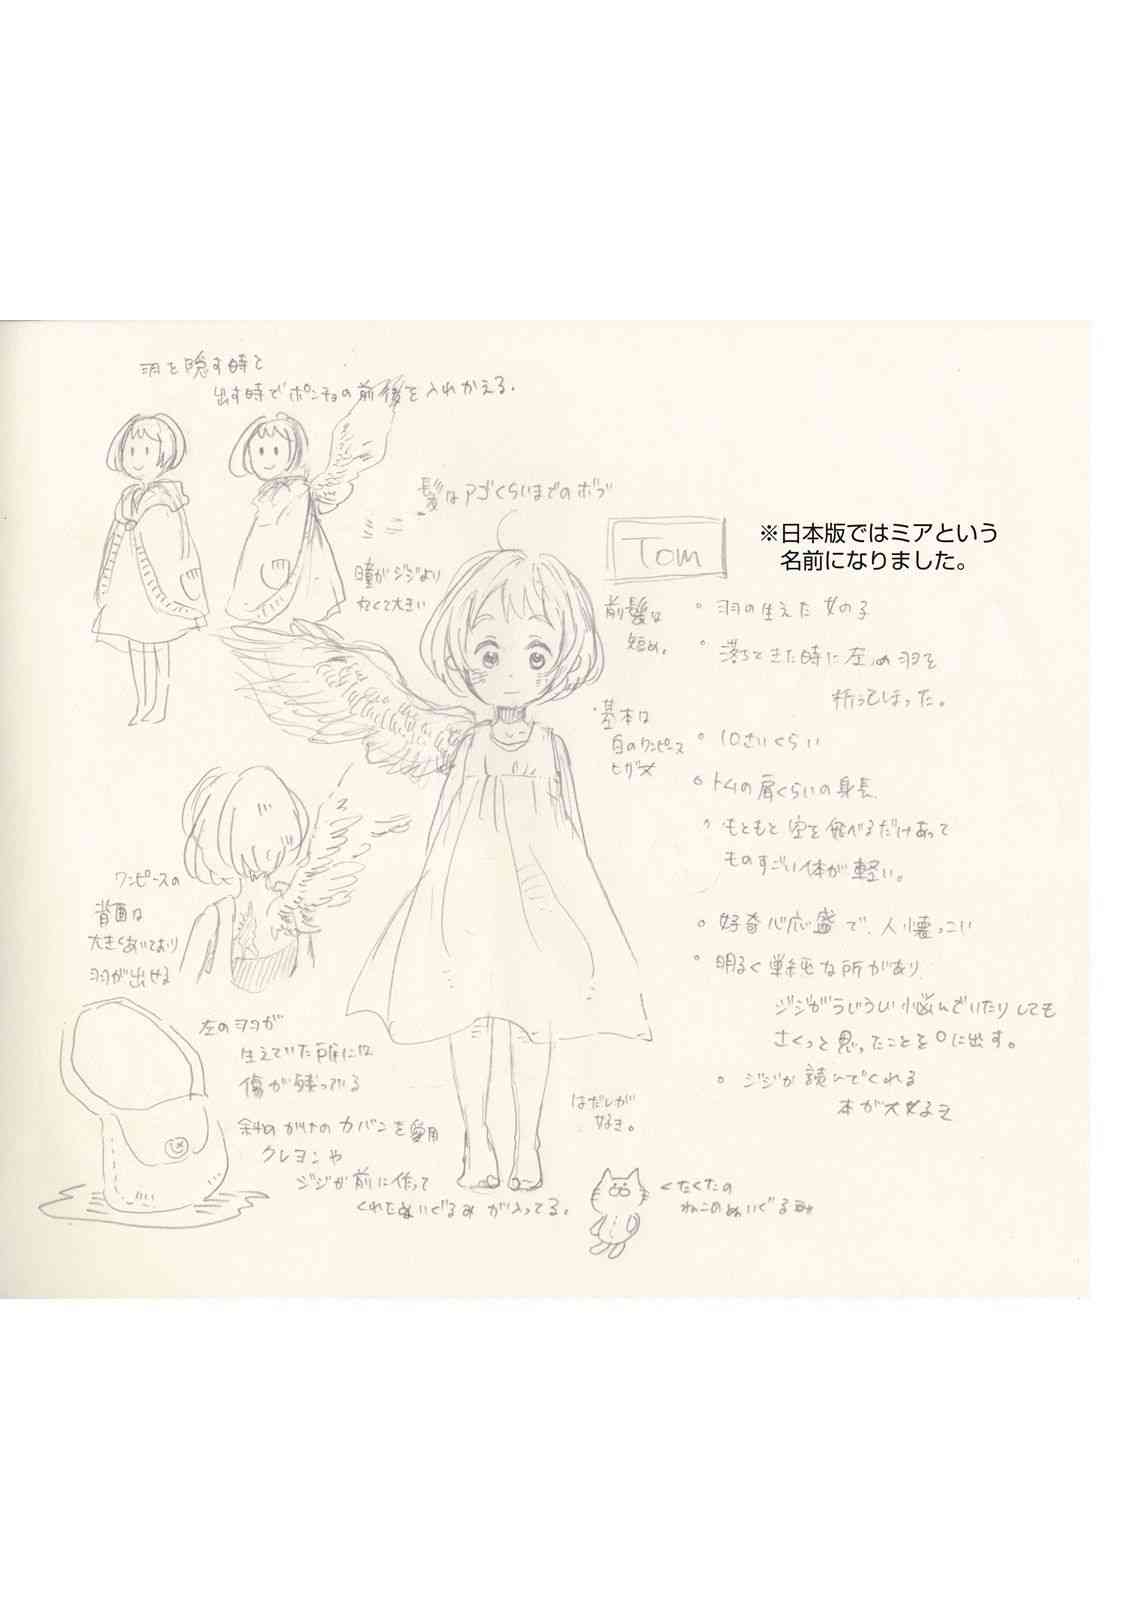 羽を隠す時と
出す時でポンチョの前後を入れかえる.
髪はアゴくらいまでのボブ
瞳がジジより
丸くて大きい
Tom
※日本版ではミアという
名前になりました。
前髪は
短め。
・基本は
白のワンピース
ヒザ丈
° 羽の生えた女の子
° 落ちてきた時に左の羽を
折ってしまった。
° 10さいくらい
° トムの肩くらいの身長
° もともと空を飛べるだけあって
ものすごい体が軽い。
° 好奇心応盛で、人懐っこい
° 明るく単純な所があり
ジジがうじうじ悩んでいたりしても
さくっと思ったことを口に出す。
° ジジが読んでくれる
本が大好き
ワンピースの
背面は
大きくあいており
羽が出せる
左のヨコが
生えていた所には
傷が残っている
斜めがけのカバンを愛用
クレヨンや
ジジが前に作って
くれたぬいぐるみが入ってる。
はだしが
好き。
くたくたの
ねこのぬいぐるみ